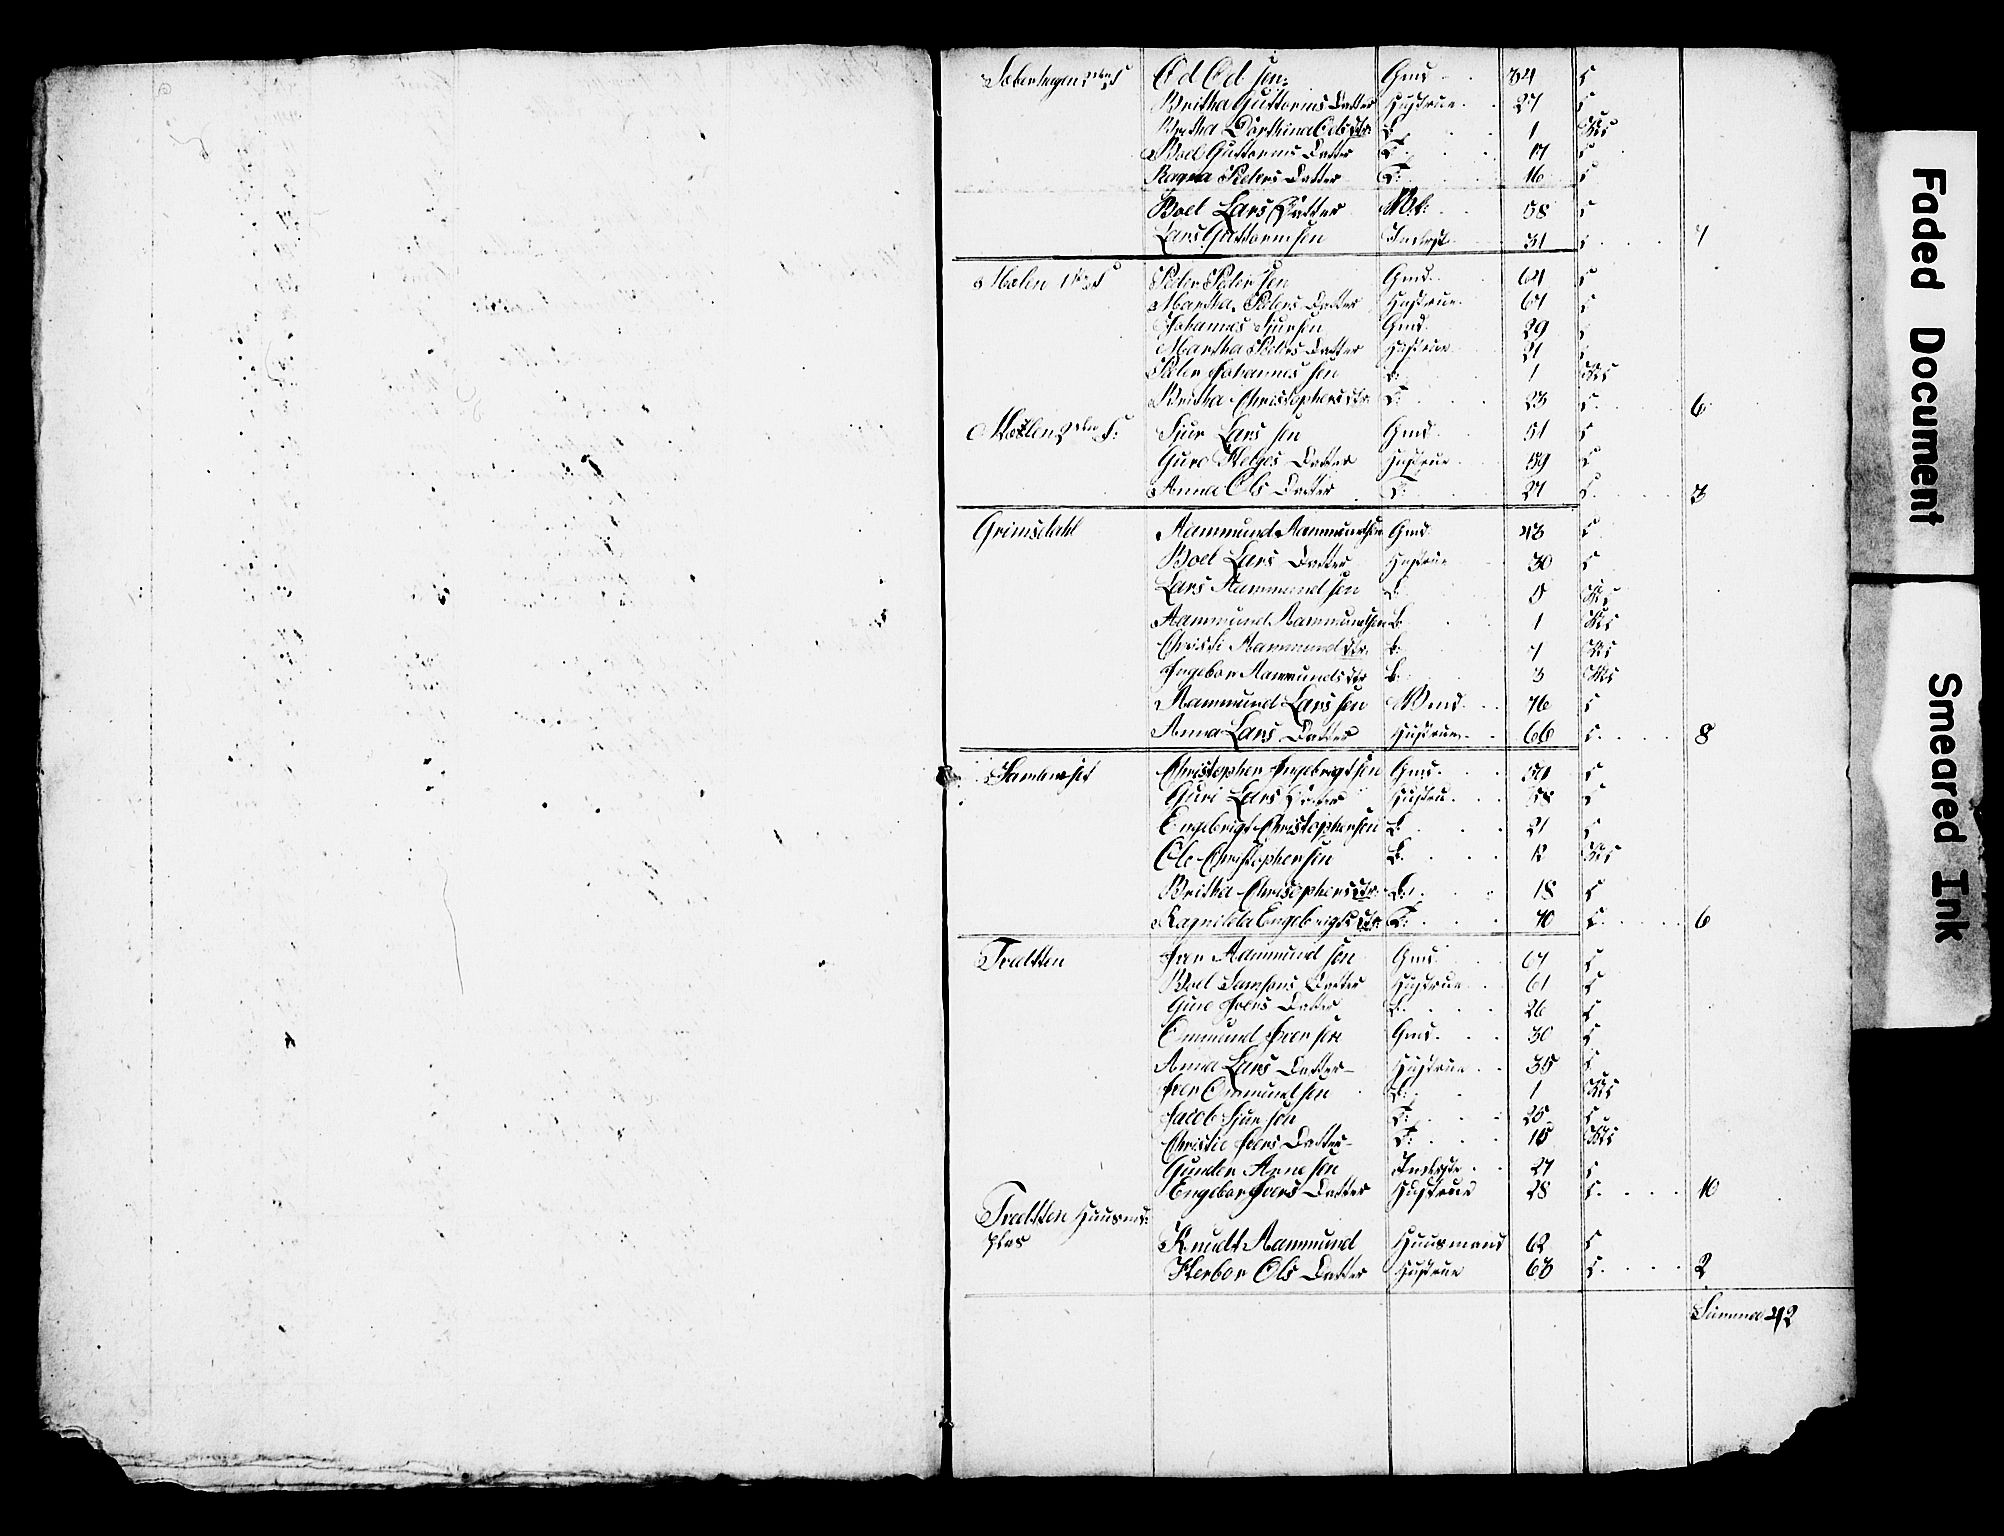 Od Od sen: Gmd 34 c
Britha Guttorms Datter Hustrue 27 c
Britha Dorthina Ods dtr: B 1 Ks
Boel Guttorms Datter T: 17 c
Ragna Peders Datter T: 16 c
Boel Lars Datter 58 c
Lars Guttormsen Inderst 31 c 7
Molen 1ste F Peder Pedersen Gmd 64 c
Martha Peders Datter Hustrue 61 c
Johannes Siursen Gmd 29 c
Martha Peders Datter Hustrue 21 c
Peder Johannessen B: 1 Ks
Britha Christophers dtr: T: 23 c 6
Molen 2den F: Siur Larssen Gmd 51 c
Guro Helges Datter Hustrue 59 c
Anna Ols Datter T: 27 c 3
Grimsdahl Aammund Aammundsen Gmd 43 c
Boel Lars Datter Hustrue 30 c
Lars Aammundsen B: 5 Ks
Aammund Aammundsen B: 1 Ks
Christi Aammunds dtr: B: 7 Ks
Ingebor Aammunds dtr B: 3 Ks
Aammund Larssen 76 c
Anna Lars Datter Hustrue 66 c 8
Christopher Ingebrigtsen Gmd 51 c
Guri Lars Datter Hustru 58 c
Engebrigt Christophersen B: 21 c
Ole Christophersen B: 12 Ks
Britha Christophers dtr: B: 18 c
Ragnilda Engebrigts dtr: T: 70 c 6
Tvedtten Iver Aammundsen Gmd 67 c
Boel Samsons Datter Hustrue 61 c
Guro Ivers Datter B: 26 c
Ommund Iversen Gmd 30 c
Anna Lars Datter Hustrue 35 c
Iver Ommundsen B: 1 Ks
Jacob Siursen T: 25 c
Christie Ivers Datter T: 15 Ks
Gunder Arnesen Inderste 27 c
Engebor Ivers Datter Hustrue 28 c 10
Tvedtten Huusmd:
plds Knudt Aammund Huusmand 62 c
Herbor Ols Datter Hustrue 63 c 2
Summa 42
Faded Document
Smeared Ink